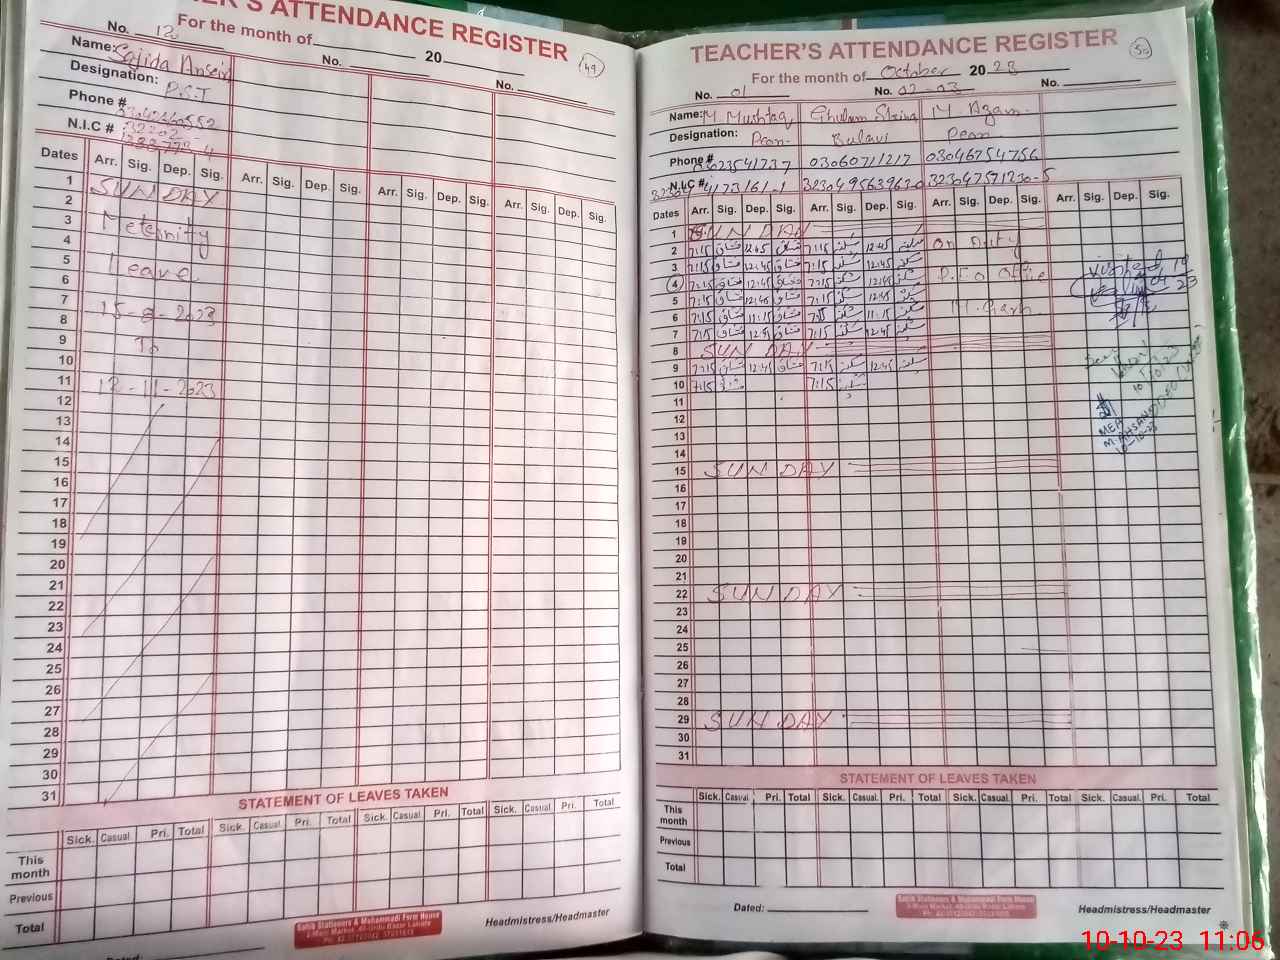 R'S ATTENDANCE REGISTER
For the month of 20
49
No. 12 No. No.
Name: Sajida
Designation: P.S.T
Phone #
N.I.C #
Dates Arr. Sig. Dep. Sig. Arr. Sig. Dep. Sig. Arr. Sig. Dep. Sig. Arr. Sig. Dep. Sig.
1 SUNDAY
2
3 Meternity
4
5 Leave
6
7 15-8-2023
8
9 To
10
11 12-11-2023
12
13
14
15
16
17
18
19
20
21
22
23
24
25
26
27
28
29
30
31
STATEMENT OF LEAVES TAKEN
Sick. Casual Pri. Total Sick. Casual. Pri. Total Sick. Casual. Pri. Total Sick. Casual. Pri. Total
This month
Previous
Total
Sahik Stationers & Muhammadi Form House
2-Main Market, 40-Urdu Bazar Lahore
Headmistress/Headmaster
TEACHER'S ATTENDANCE REGISTER
50
For the month of October 2023
No. 01 No. 02-03 No.
Name: M. Mushtaq Ghulam M Azam
Designation: Peon Peon
Phone # 03060711217 03046754756
N.I.C #
Dates Arr. Sig. Dep. Sig. Arr. Sig. Dep. Sig. Arr. Sig. Dep. Sig. Arr. Sig. Dep. Sig.
1 SUNDAY
2 7:15 مشتاق 12:45 مشتاق 7:15 12:45 on duty
3 7:15 مشتاق 12:45 مشتاق 7:15 12:45
4 7:15 مشتاق 12:45 مشتاق 7:15 12:45 Office
5 7:15 مشتاق 12:45 مشتاق 7:15 12:45
6 7:15 مشتاق 11:15 مشتاق 7:15 11:15 M. Garh
7 7:15 مشتاق 12:45 مشتاق 7:15 12:45
8 SUNDAY
9 7:15 مشتاق 12:45 مشتاق 7:15 12:45
10 7:15 مشتاق 7:15
11
12
13
14
15 SUNDAY
16
17
18
19
20
21
22 SUNDAY
23
24
25
26
27
28
29 SUNDAY
30
31
MEA
10-10-23
STATEMENT OF LEAVES TAKEN
Sick. Casual. Pri. Total Sick. Casual. Pri. Total Sick. Casual. Pri. Total Sick. Casual. Pri. Total
This month
Previous
Total
Dated:
Sahik Stationers & Muhammadi Form House
2-Main Market, 40-Urdu Bazar Lahore
Headmistress/Headmaster
10-10-23 11:06